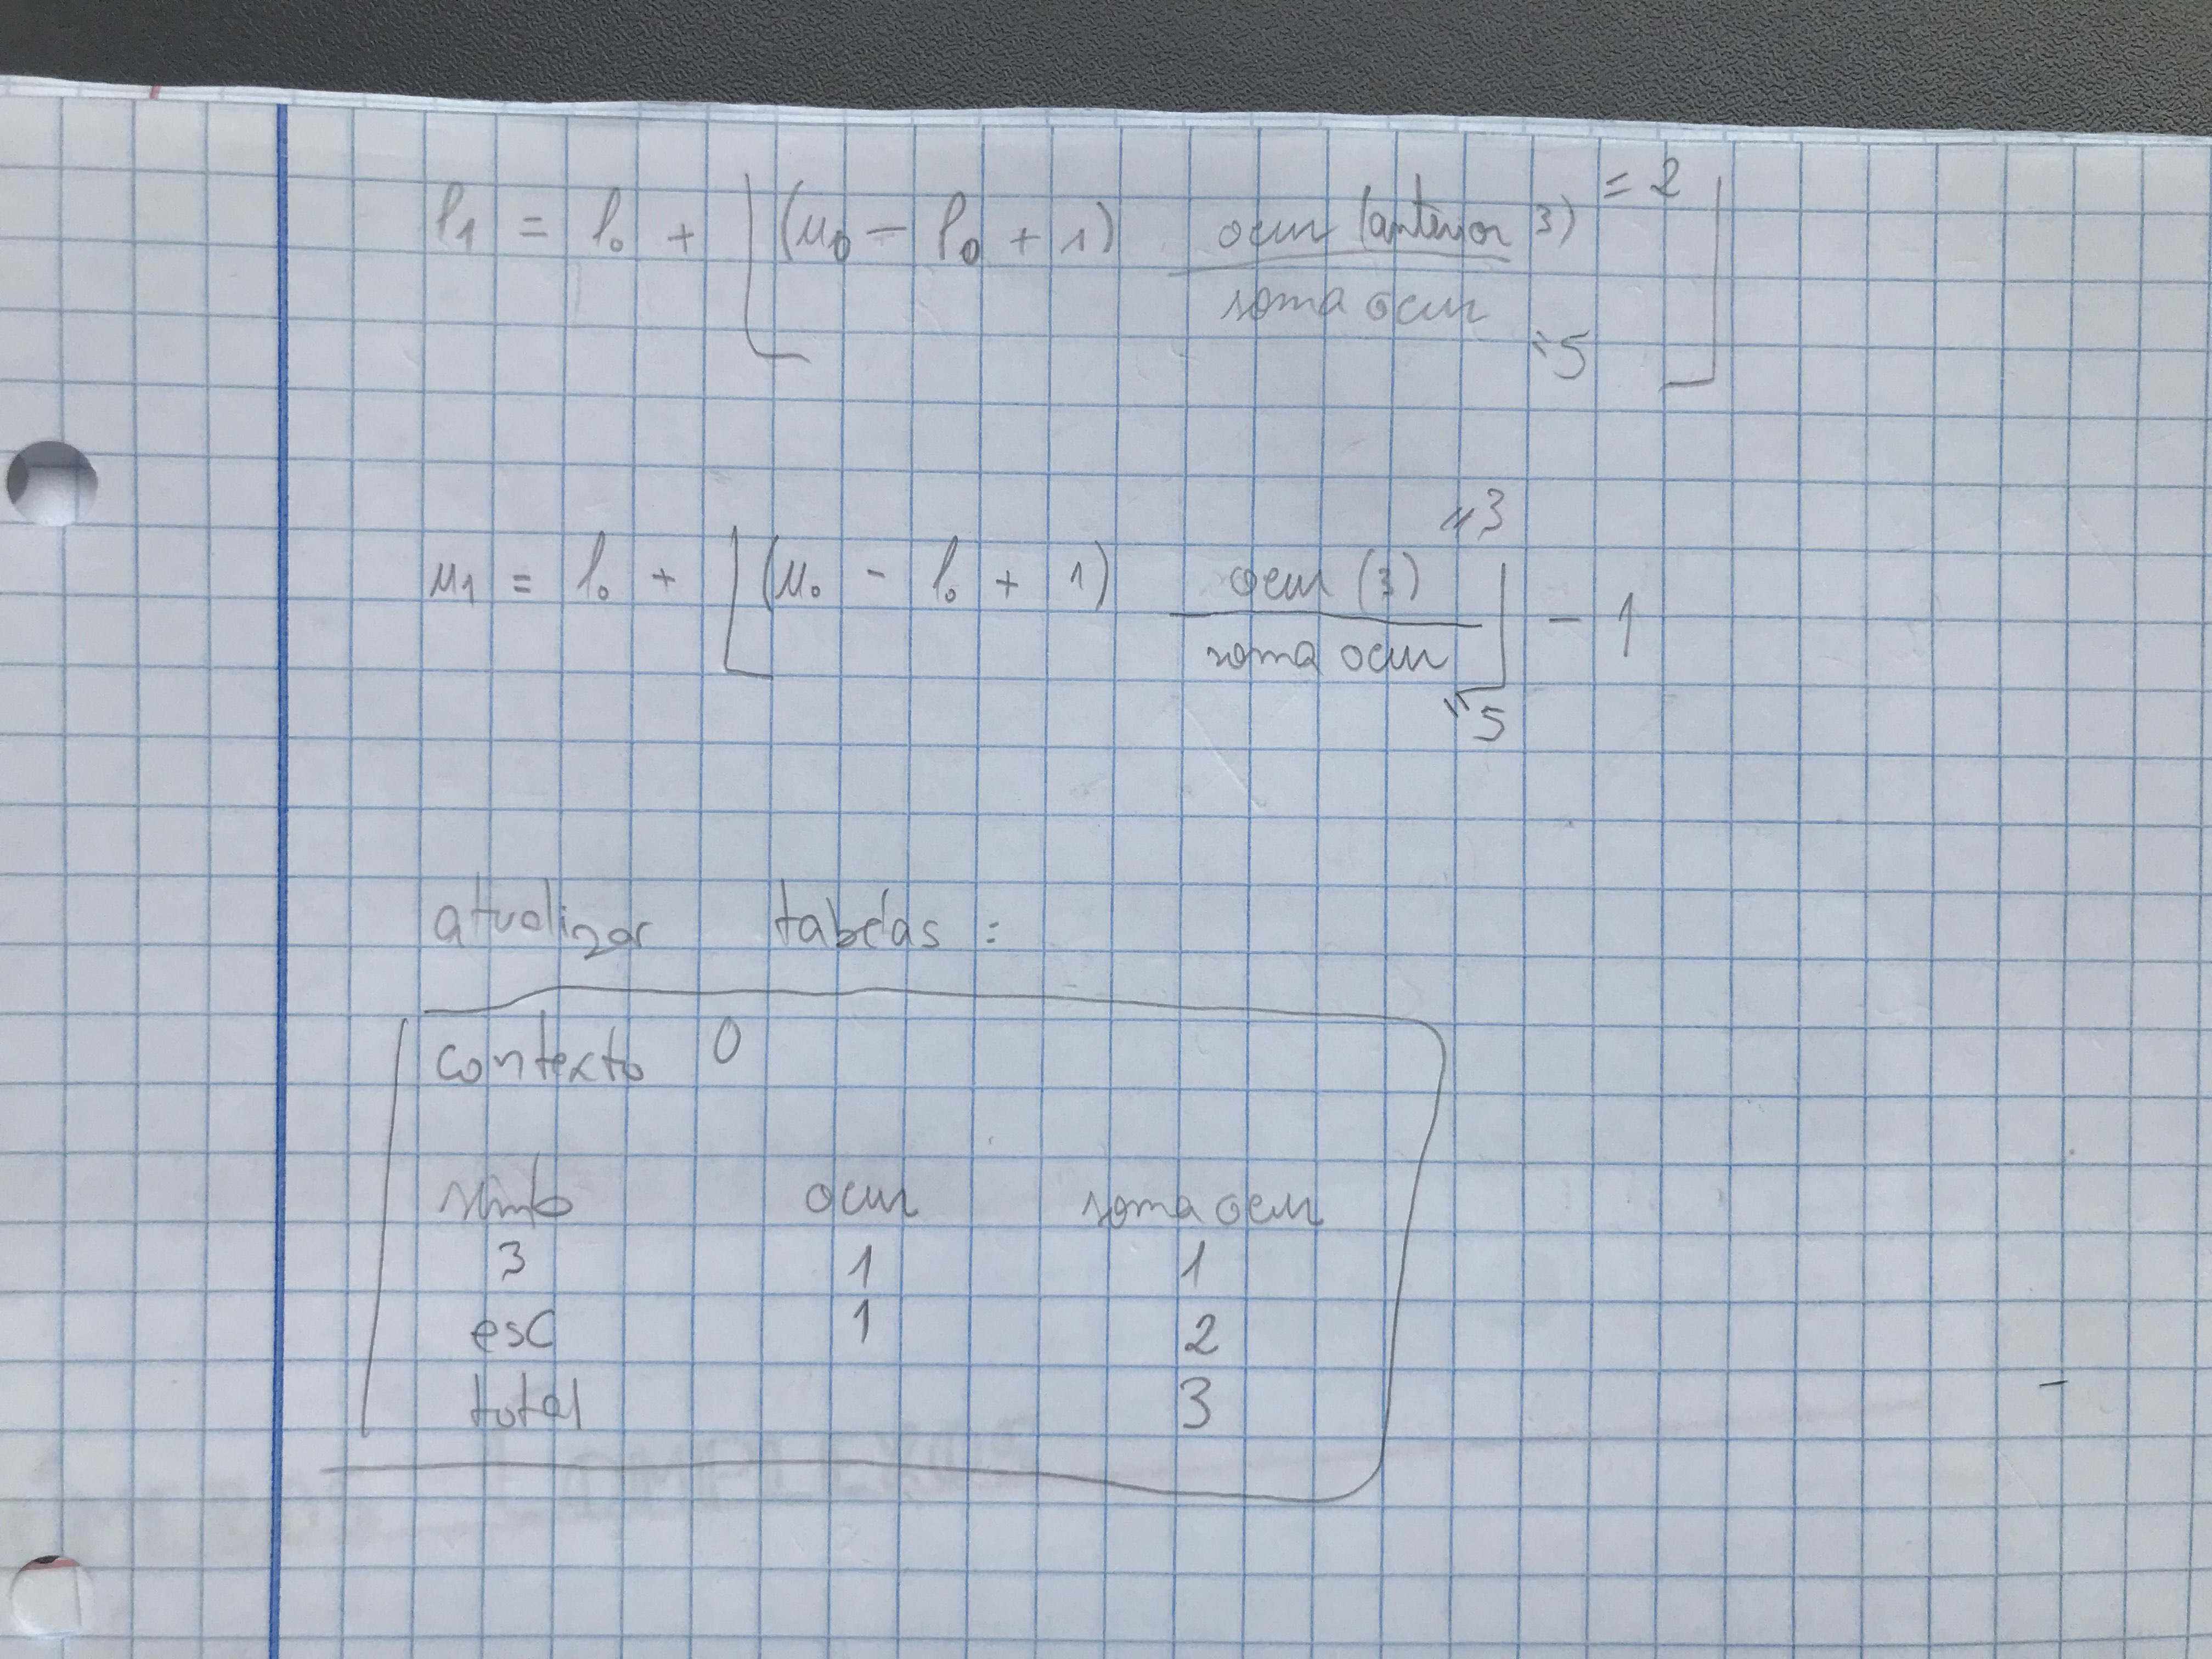 l₁ = l₀ + ⌊(u₀ - l₀ + 1) ocurr (anterior 3) = 2 / soma ocurr = 5⌋
u₁ = l₀ + ⌊(u₀ - l₀ + 1) ocurr (3) = 3 / soma ocurr = 5⌋ - 1
atualizar tabelas :
contexto 0
simb ocurr soma ocurr
3 1 1
esc 1 2
total 3